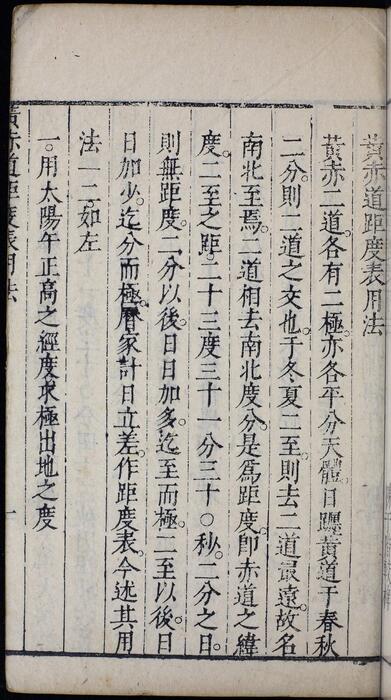 黃赤道距度表用法
黃赤二道。各有二極。亦各平分天體。日躔黃道于春秋
二分。則二道之交也。于冬夏二至。則去二道最遠。故名
南北至焉。二道相去南北度分。是爲距度。卽赤道之緯
度。二至之距。二十三度三十一分三十〇秒。二分之日。
則無距度。二分以後。日日加多。迄至而極。二至以後。日
日加少。迄分而極。曆家計日立差。作距度表。今述其用
法一二如左
一。用太陽午正高之經度求極出地之度
黃赤道距度表用法
一